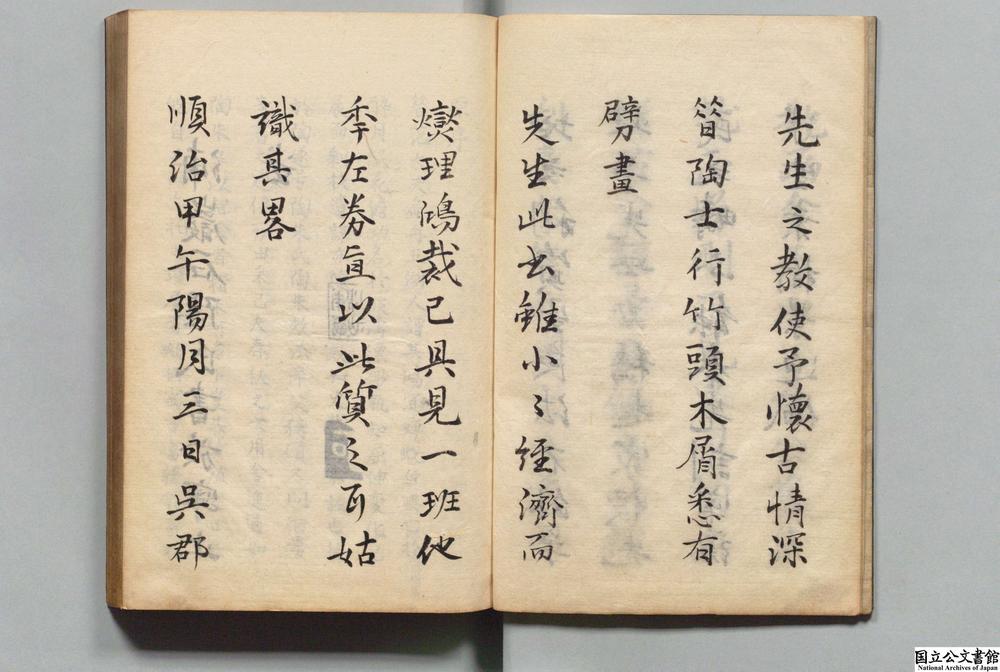 先生之教使予懷古情深
昝陶士行竹頭木屑悉有
劈畫
先生此書雖小〻經濟而
爕理鴻裁已具見一班他
季左券直以此質之耳姑
識其畧
順治甲午陽月三日吳郡
国立公文書館
National Archives of Japan